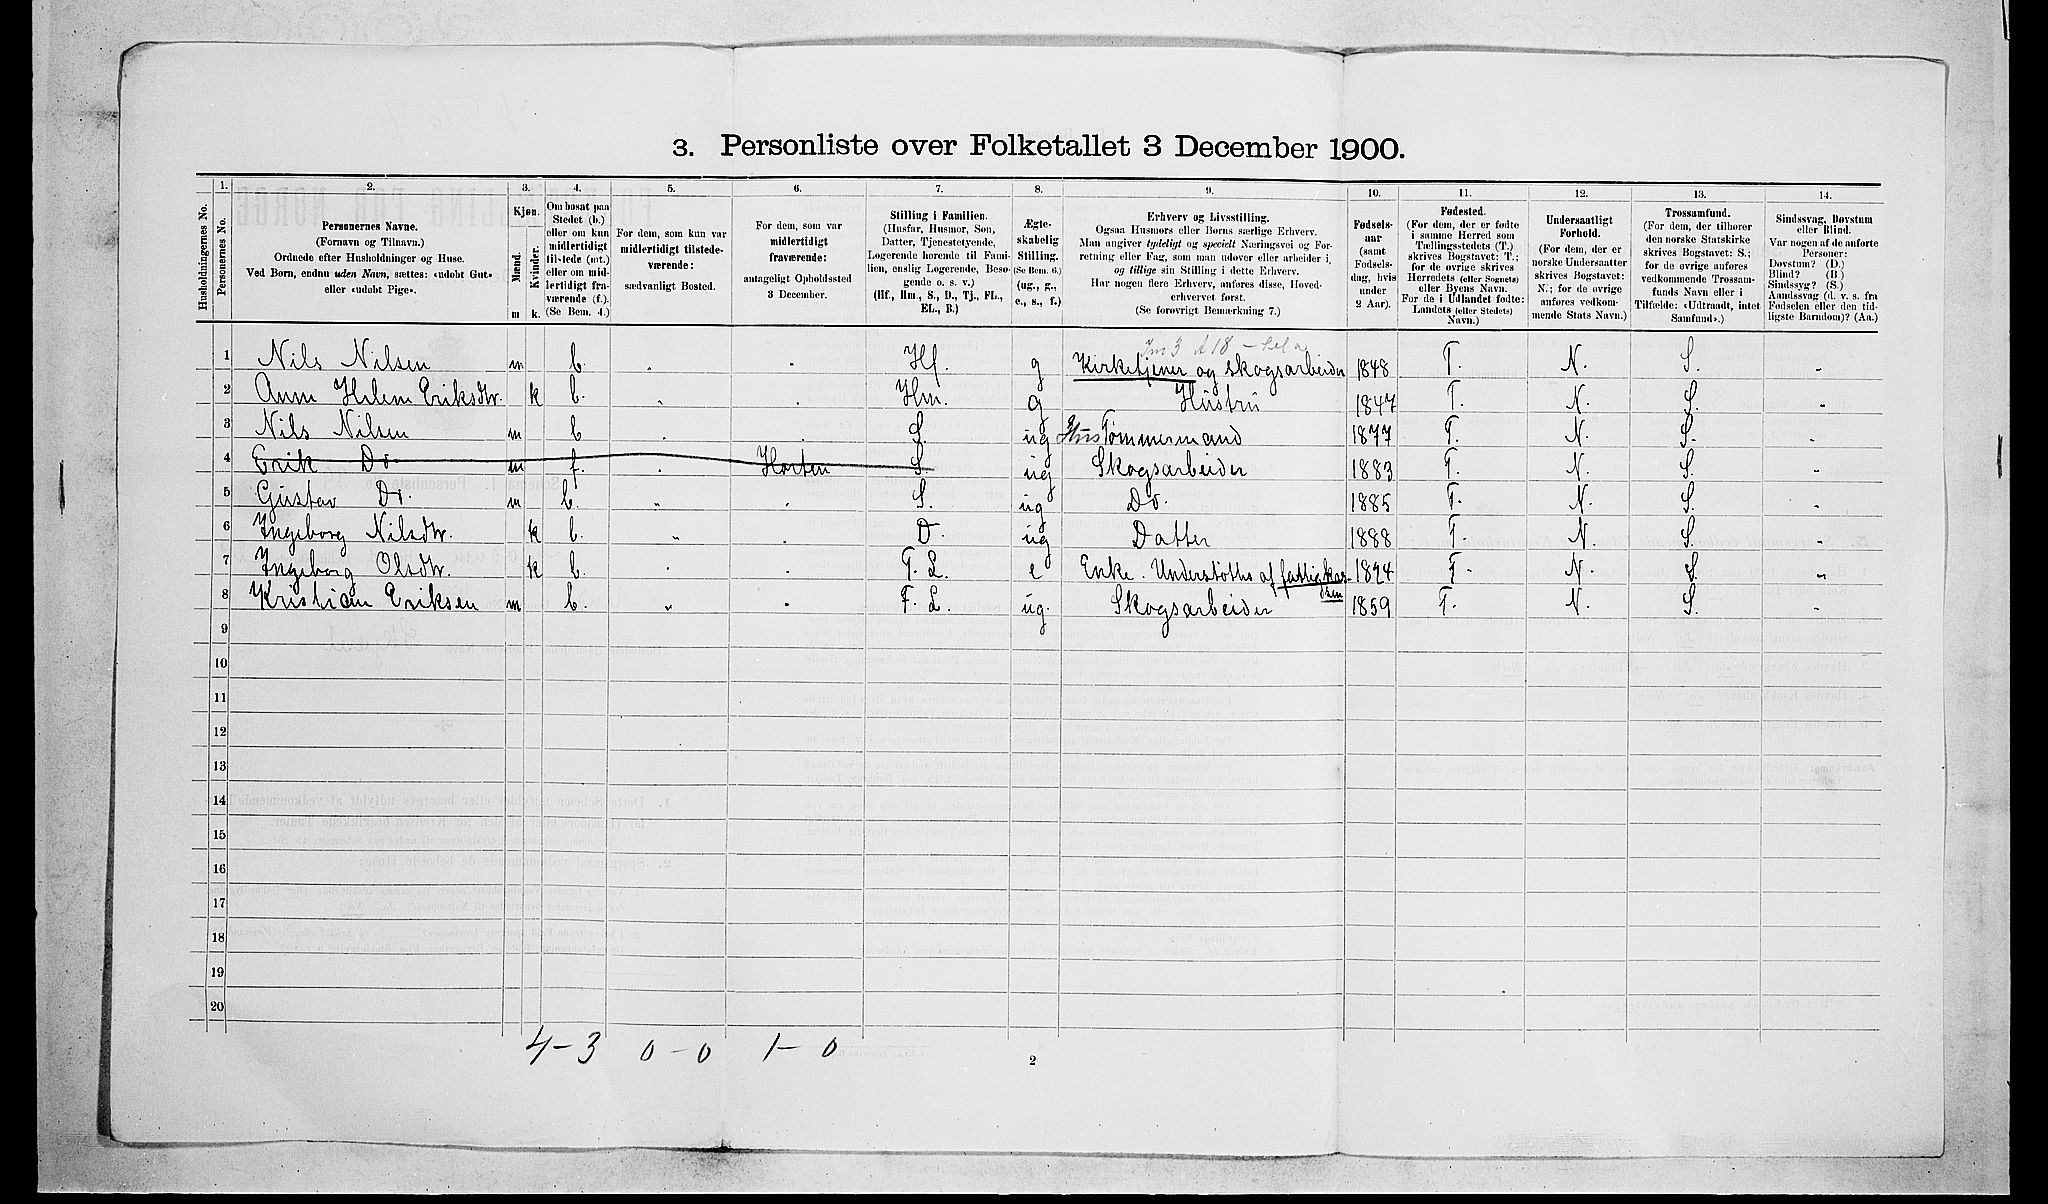 3. Personliste over Folketallet 3 December 1900.
Husholdningernes No.
1. Personernes No.
2. Personernes Navne. (Fornavn og Tilnavn.) Ordnede efter Husholdninger og Huse. Ved Børn, endnu uden Navn, sættes: «udøbt Gut» eller «udøbt Pige».
3. Kjøn. Mænd. m Kvinder. k.
4. Om bosat paa Stedet (b.) eller om kun midlertidigt tilstede (mt.) eller om midlertidigt fraværende (f.) (Se Bem. 4.)
5. For dem, som kun var midlertidigt tilstedeværende: sædvanligt Bosted.
6. For dem, som var midlertidigt fraværende: antageligt Opholdssted 3 December.
7. Stilling i Familien. (Husfar, Husmor, Søn, Datter, Tjenestetyende, Logerende hørende til Familien, enslig Logerende, Besøgende o. s. v.) (Hf., Hm., S., D., Tj., FL., EL., B.)
8. Ægteskabelig Stilling. (Se Bem. 6.) (ug., g., e., s., f.)
9. Erhverv og Livsstilling. Ogsaa Husmors eller Børns særlige Erhverv. Man angiver tydeligt og specielt Næringsvei og Forretning eller Fag, som man udøver eller arbeider i, og tillige sin Stilling i dette Erhverv. Har nogen flere Erhverv, anføres disse, Hovederhvervet først. (Se forøvrigt Bemærkning 7.)
10. Fødselsaar (samt Fødselsdag, hvis under 2 Aar).
11. Fødested. (For dem, der er fødte i samme Herred som Tællingsstedets (T.) skrives Bogstavet: T.; for de øvrige skrives Herredets (eller Sognets) eller Byens Navn. For de i Udlandet fødte: Landets (eller Stedets) Navn.)
12. Undersaatligt Forhold. (For dem, der er norske Undersaatter skrives Bogstavet: N.; for de øvrige anføres vedkommende Stats Navn.)
13. Trossamfund. (For dem, der tilhører den norske Statskirke skrives Bogstavet: S.; for de øvrige anføres vedkommende Trossamfunds Navn eller i Tilfælde: «Udtraadt, intet Samfund».)
14. Sindssvag, Døvstum eller Blind. Var nogen af de anførte Personer: Døvstum? (D.) Blind? (B.) Sindssyg? (S.) Aandssvag (d. v. s. fra Fødselen eller den tidligste Barndom)? (Aa.)
1 Nils Nilsen m b. " " Hf. g Kirketjener og Skogsarbeider 1848 T. N. S. "
2 Anne Helene Eriksdtr. k b. " " Hm. g Hustru 1847 T. N. S. "
3 Nils Nilsen m b " " S. ug Hus Tømmermand 1877 T. N. S. "
4 Erik Do m f. " Horten S ug Skogsarbeider 1883 T. N. S. "
5 Gustav Do. m b. " " S. ug Do. 1885 T. N. S. "
6 Ingeborg Nilsdtr. k b. " " D. ug Datter 1888 T. N. S. "
7 Ingeborg Olsdtr. k b. " " F. L. e Enke. Understøttes af fattigkas- 1824 T. N. S. "
sen
8 Kristian Eriksen m b. " " F. L. ug. Skogsarbeider 1859 T. N. S. "
9
10
11
12
13
14
15
16
17
18
19
20
4-3 0-0 1-0
2